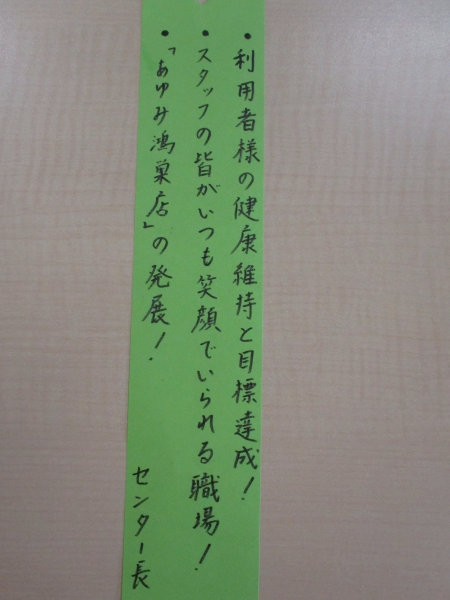 ・利用者様の健康維持と目標達成！
・スタッフの皆がいつも笑顔でいられる職場！
・「あゆみ鴻巣店」の発展！
センター長